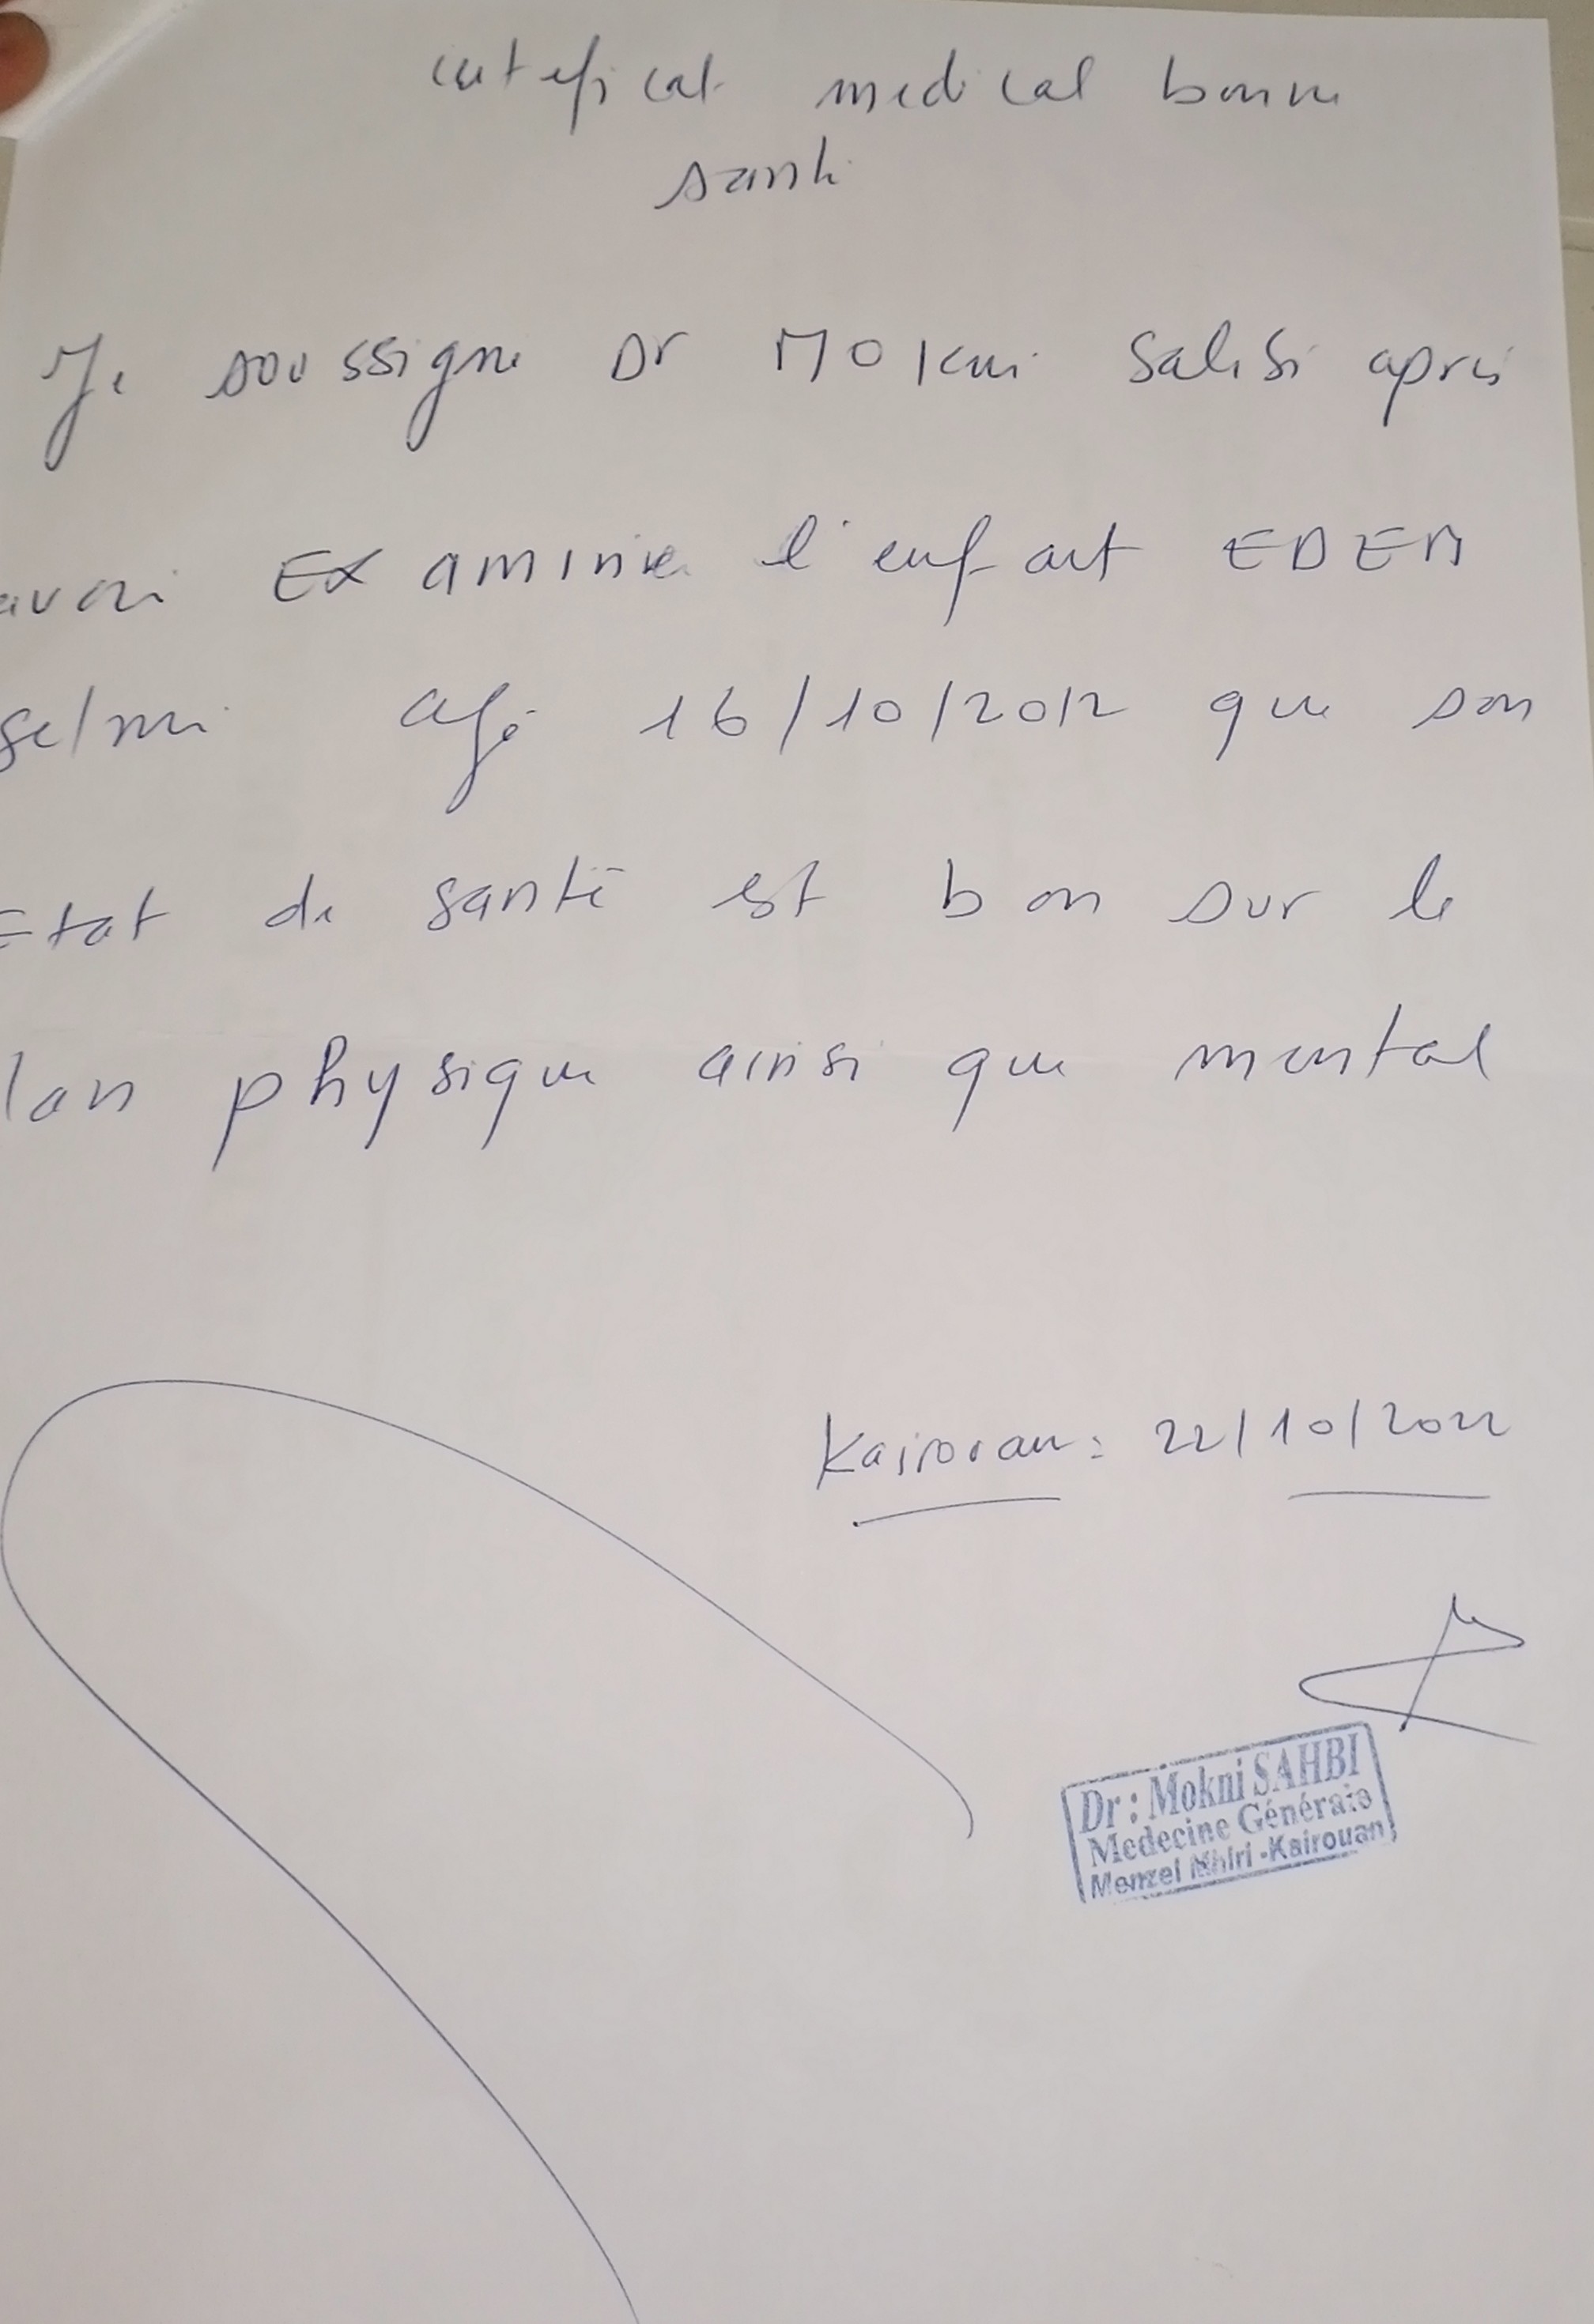 certeficat medical bonne
santé
Je soussigne Dr MOKni Sahbi après
avoir EXaminée l'enfant EDEN
selmi agé 16/10/2012 que son
Etat de santé est bon sur le
lan physique ainsi que mental
Kairouan: 22/10/2022
Dr : Mokni SAHBI
Medecine Générale
Menzel Mhiri -Kairouan